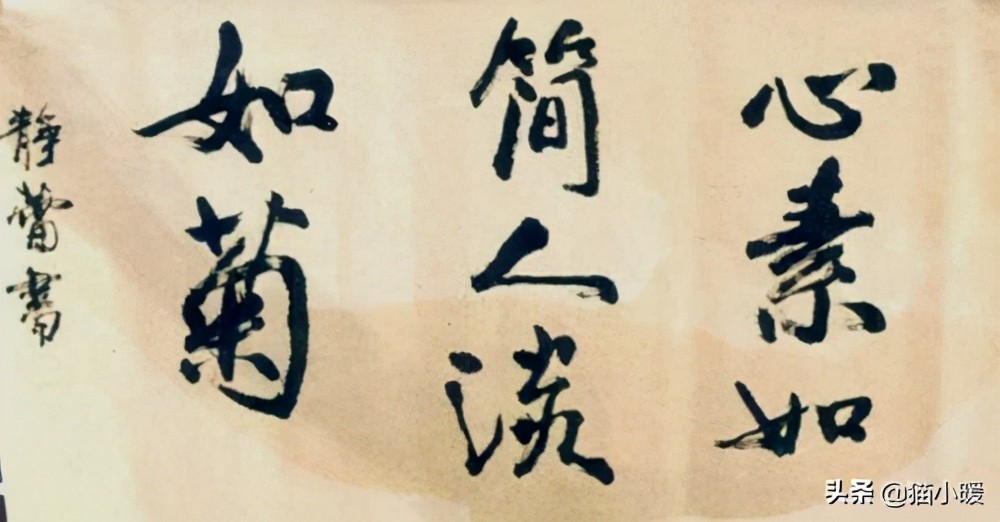 心素如
简人淡
如菊
静蕾书
头条 @猫小暖